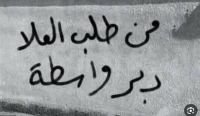 من طلب العلا
دبر واسطة